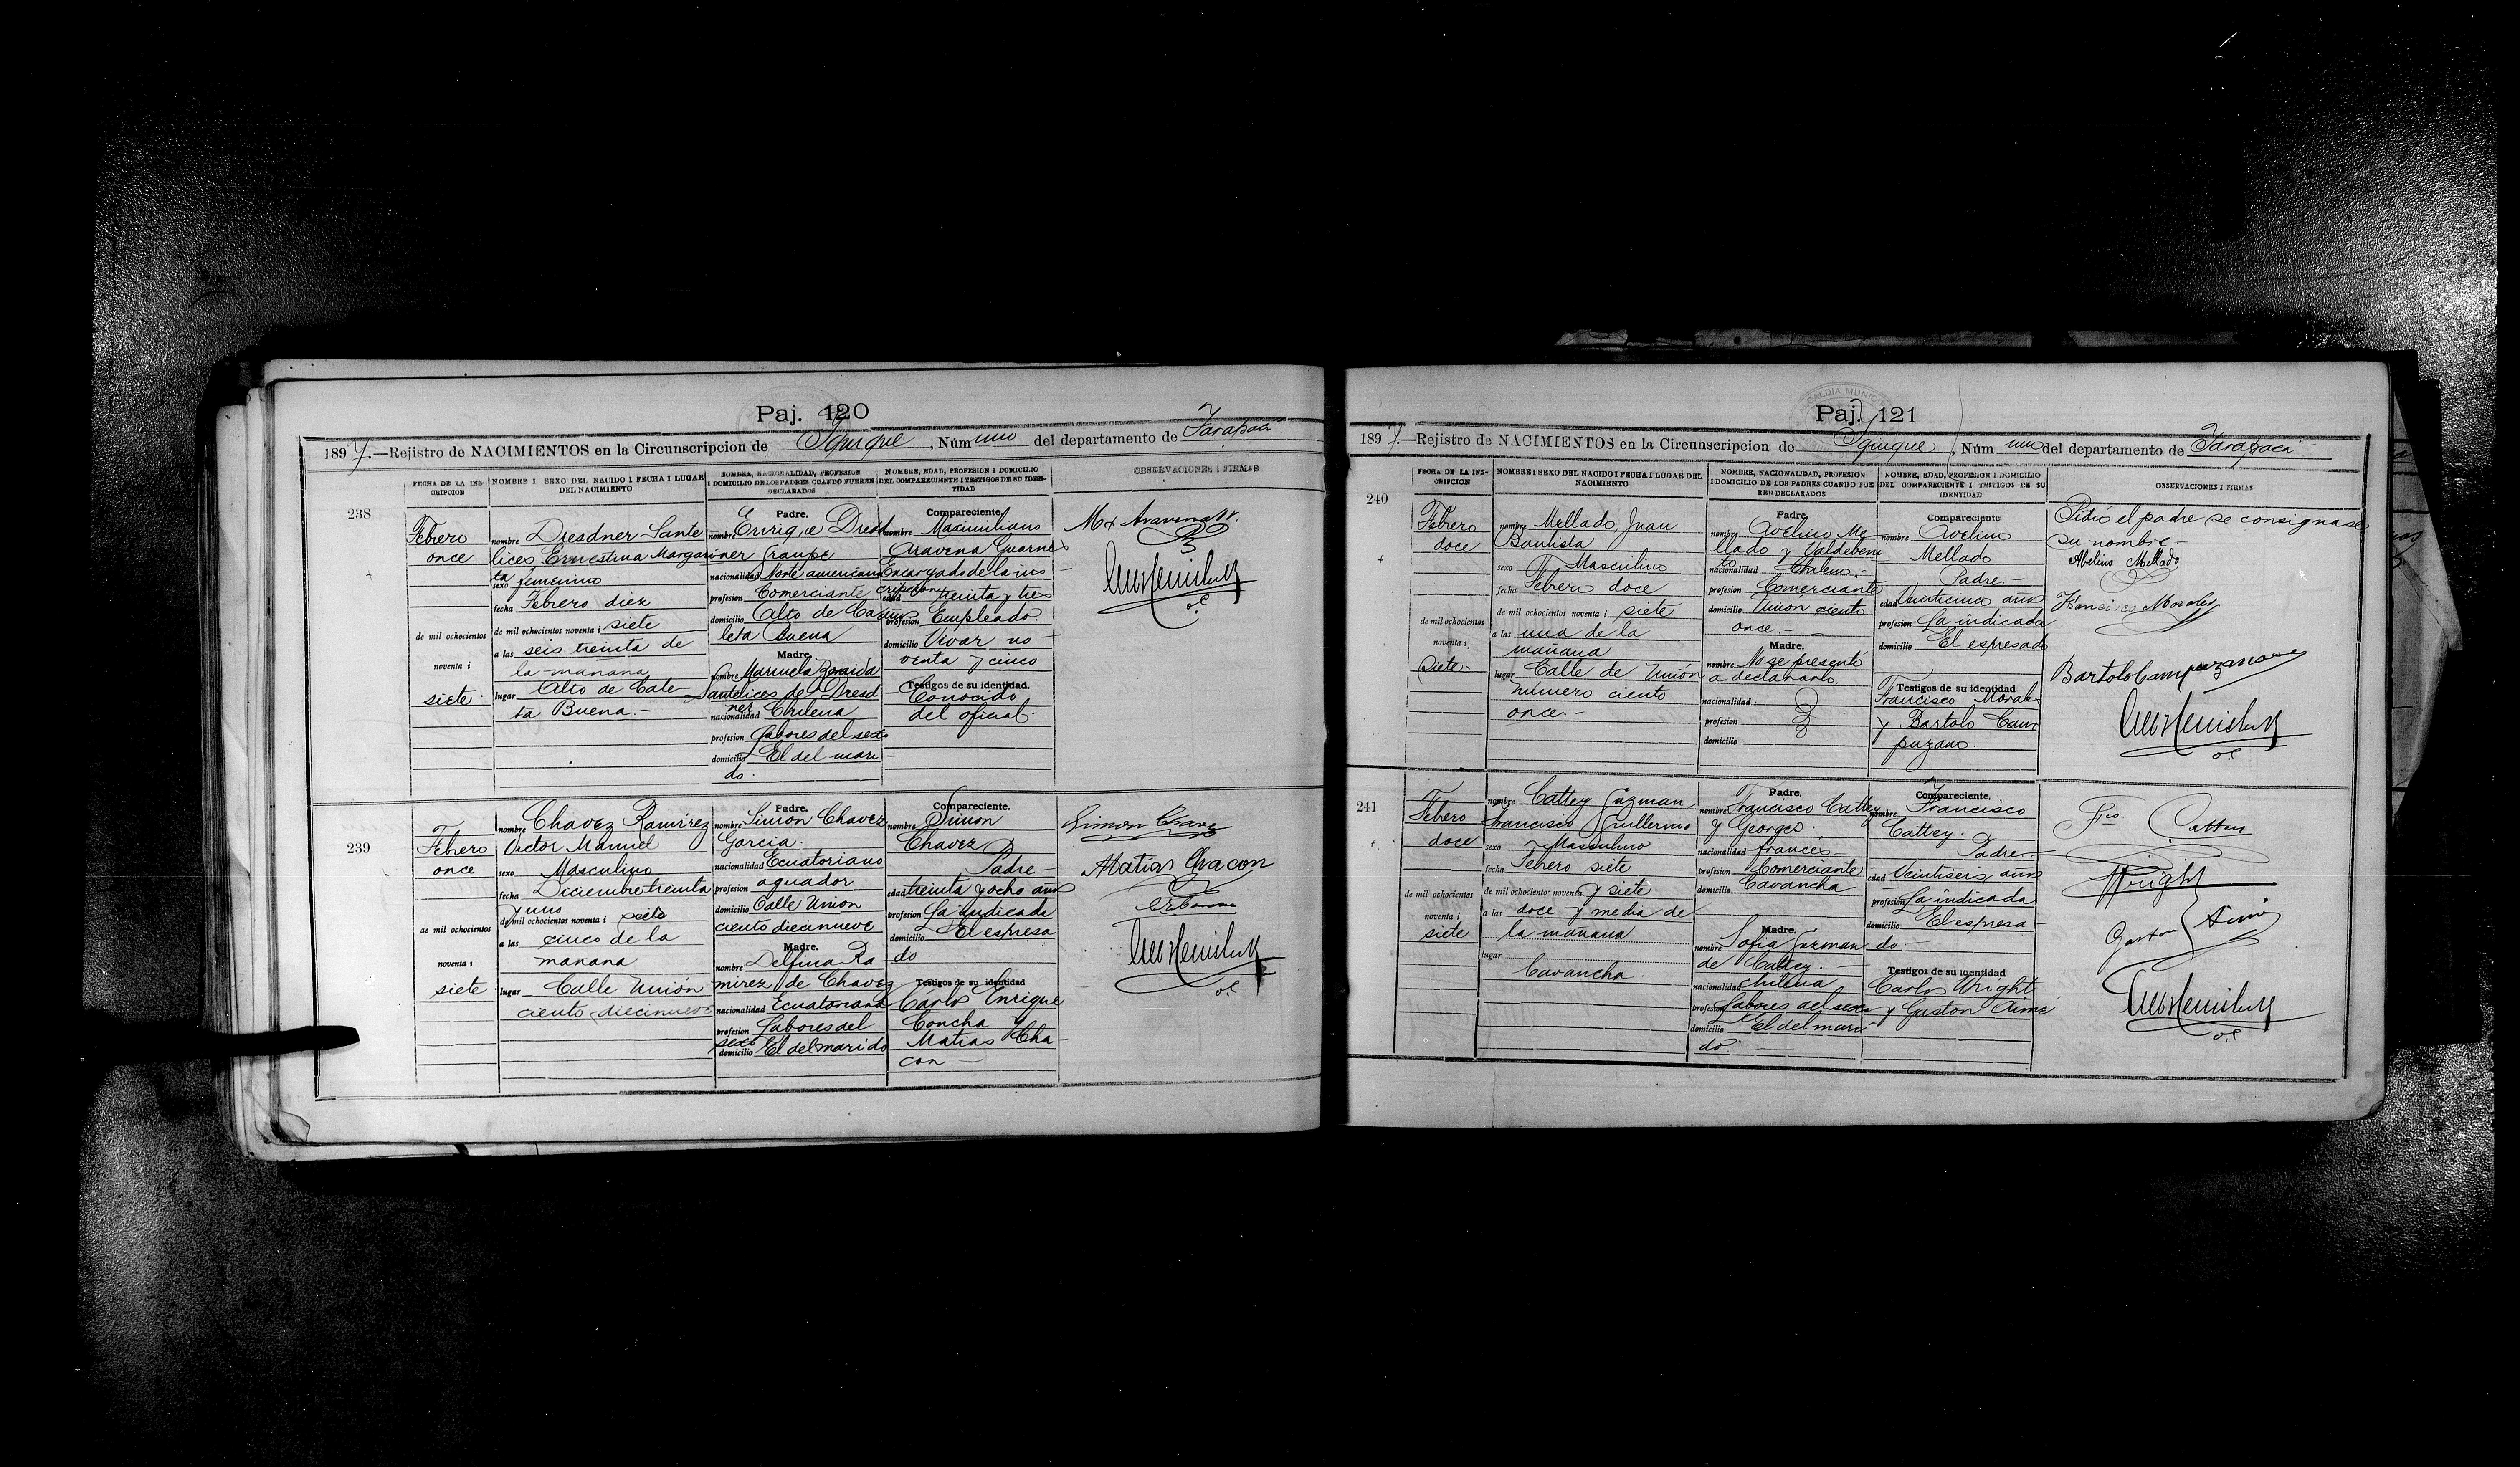 Paj. 120
1897.—Rejistro de NACIMIENTOS en la Circunscripcion de Iquique, Núm uno del departamento de Tarapacá
FECHA DE LA INSCRIPCION
NOMBRE I SEXO DEL NACIDO I FECHA I LUGAR DEL NACIMIENTO
NOMBRE, NACIONALIDAD, PROFESION I DOMICILIO DE LOS PADRES CUANDO FUEREN DECLARADOS
NOMBRE, EDAD, PROFESION I DOMICILIO DEL COMPARECIENTE I TESTIGOS DE SU IDENTIDAD
OBSERVACIONES I FIRMAS
238
Febrero
once
de mil ochocientos
noventa i
siete
nombre Dresdner Sante
lices Ernestina Margari
ta
sexo femenino
fecha Febrero diez
de mil ochocientos noventa i siete
a las seis treinta de
la mañana
lugar Alto de Cale
ta Buena.-
Padre.
nombre Enrique Dresd
ner Traupe
nacionalidad Norte americano
profesion Comerciante
domicilio Alto de Ca
leta Buena
Madre.
nombre Manuela Zoraida
Santelices de Dresd
ner
nacionalidad Chilena
profesion Labores del sexo
domicilio El del mari
do.
Compareciente.
nombre Maximiliano
Aravena Guarnes
Encargado de la ins
cripcion
edad treinta y tres
años
profesion Empleado.
domicilio Vivar no
venta y cinco
Testigos de su identidad.
Conocido
del oficial.
Mx Aravena
o.c.
239
Febrero
once
de mil ochocientos
noventa i
siete
nombre Chavez Ramirez
Victor Manuel
sexo Masculino
fecha Diciembre treinta
y uno
de mil ochocientos noventa i seis
a las cinco de la
mañana
lugar Calle Unión
ciento diecinueve
Padre.
nombre Simon Chavez
Garcia.
nacionalidad Ecuatoriano
profesion aguador
domicilio Calle Union
ciento diecinueve
Madre.
nombre Delfina Ra
mirez de Chavez
nacionalidad Ecuatoriana
profesion Labores del
sexo
domicilio El del marido
Compareciente.
nombre Simon
Chavez
Padre
edad treinta y ocho años
profesion La indicada
domicilio El espresa
do.
Testigos de su identidad
Carlos Enrique
Concha y
Matias Cha
con.-
Simon Chavez
Matias Chacon
o.c.
Paj. 121
1897.—Rejistro de NACIMIENTOS en la Circunscripcion de Iquique, Núm uno del departamento de Tarapacá
FECHA DE LA INSCRIPCION
NOMBRE I SEXO DEL NACIDO I FECHA I LUGAR DEL NACIMIENTO
NOMBRE, NACIONALIDAD, PROFESION I DOMICILIO DE LOS PADRES CUANDO FUEREN DECLARADOS
NOMBRE, EDAD, PROFESION I DOMICILIO DEL COMPARECIENTE I TESTIGOS DE SU IDENTIDAD
OBSERVACIONES I FIRMAS
240
Febrero
doce
de mil ochocientos
noventa i
siete.
nombre Mellado Juan
Bautista
sexo Masculino
fecha Febrero doce
de mil ochocientos noventa i siete
a las una de la
mañana
lugar Calle de Unión
número ciento
once.-
Padre.
nombre Avelino Me
llado y Valdebeni
to
nacionalidad Chileno.-
profesion Comerciante
domicilio Unión ciento
once.-
Madre.
nombre No se presentó
a declararlo.
nacionalidad
profesion
domicilio
Compareciente
nombre Avelino
Mellado
Padre.-
edad Veinticinco años
profesion La indicada
domicilio El espresado
Testigos de su identidad
Francisco Morales
y Bartolo Cam
puzano.
Pidió el padre se consignase
su nombre.-
Abelino Mellado
Francisco Morales
Bartolo Campuzano
o.c.
241
Febrero
doce
de mil ochocientos
noventa i
siete
nombre Cattey Guzman,
Francisco Guillermo
sexo Masculino.
fecha Febrero siete
de mil ochocientos noventa y siete
a las doce y media de
la mañana
lugar
Cavancha.
Padre.
nombre Francisco Cattey
y Georges.
nacionalidad francés
profesion Comerciante
domicilio Cavancha
Madre.
nombre Sofia Guzman
de Cattey.-
nacionalidad chilena
profesion Labores del sexo
domicilio El del mari
do.
Compareciente.
nombre Francisco
Cattey.
Padre.-
edad Veintiseis años
profesion La indicada
domicilio El espresa
do.-
Testigos de su identidad
Carlos Wright
y Gaston Aimé
Fco. Cattey
Wright
Gaston Aimé
o.c.